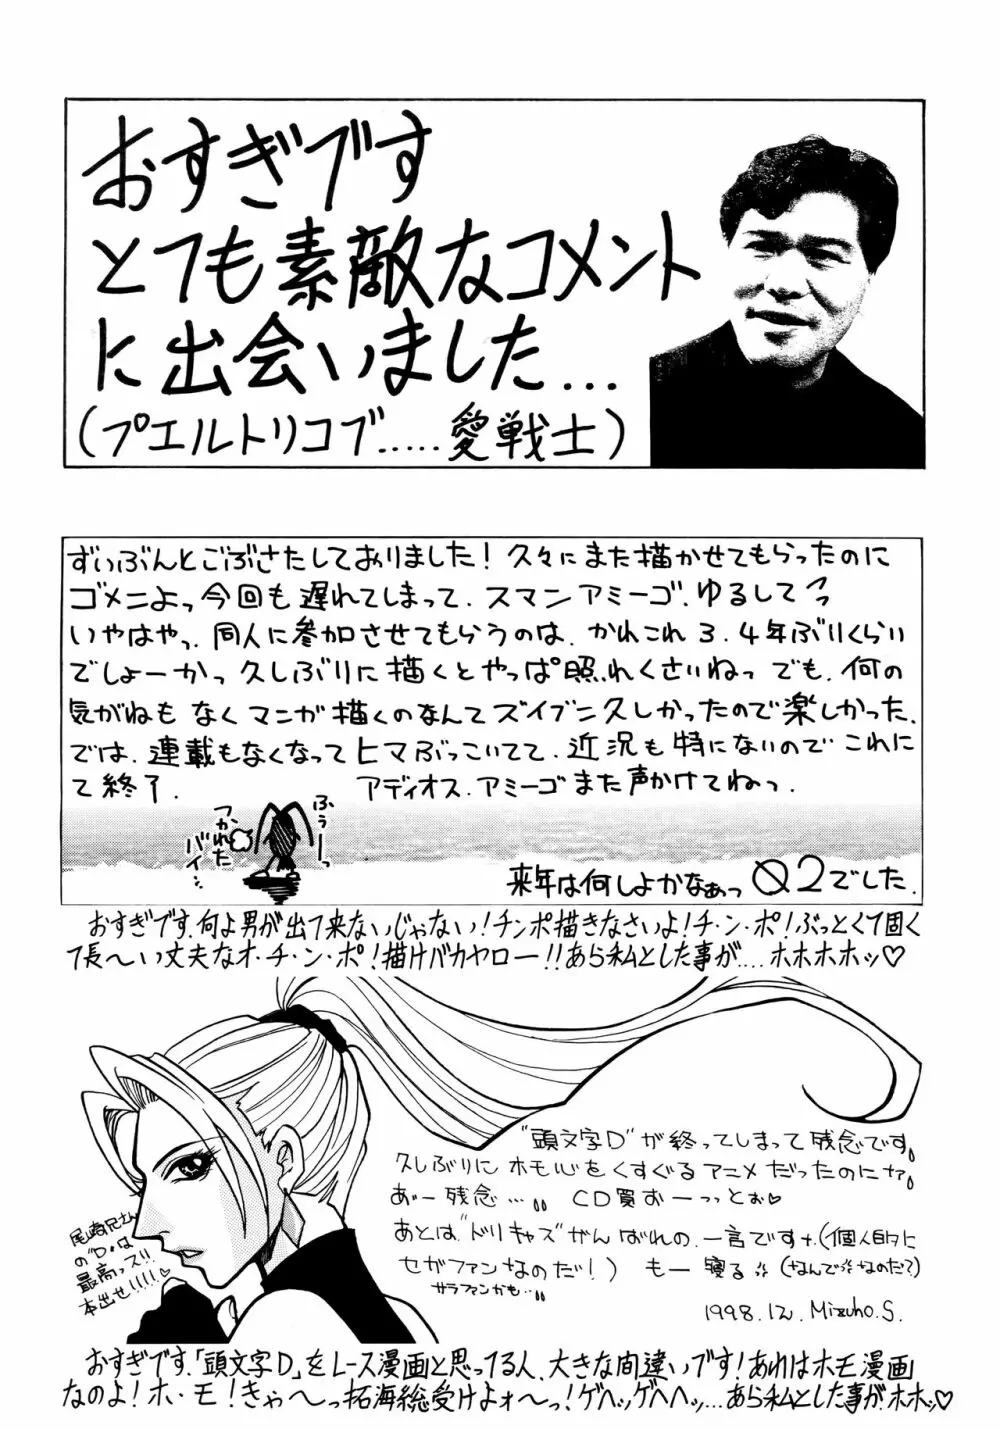 おすぎです
とても素敵なコメント
に出会いました...
(プエルトリコブ.....愛戦士)
ずいぶんとごぶさたしておりました！久々にまた描かせてもらったのに
ゴメニよっ今回も遅れてしまって、スマンアミーゴ、ゆるしてっ
いやはやっ、同人に参加させてもらうのは、かれこれ3、4年ぶりくらい
でしょーかっ久しぶりに描くとやっぱ照れくさいねっでも、何の
気がねもなくマンガ描くのなんてズイブン久しかったので楽しかった、
では、連載もなくなってヒマぶっこいてて、近況も特にないのでこれに
て終了。
アディオス、アミーゴまた声かけてねっ、
ふぅーっ
つかれた
バイ…
来年は何しよかなぁっ Ø2でした、
おすぎです、何よ男が出て来ないじゃない！チンポ描きなさいよ！チ・ン・ポ！ぶっとくて固く
て長〜い丈夫なオ・チ・ン・ポ！描けバカヤロー!!あら私とした事が....ホホホホッ♡
"頭文字D"が終ってしまって残念です。
久しぶりにホモ心をくすぐるアニメだったのになァ。
あー残念…。。CD買おーっっとぉ♡
あとは"ドリキャス"がんばれの、一言です+、(個人的に
セガファンなのだ！) もー寝る (なんで なのだ?)
サラファンかも…。。
尾崎兄さん
の"D"は
最高っス!!
本出せ!!!!♡
1998.12. Mizuho.S.
おすぎです、「頭文字D」をレース漫画と思ってる人、大きな間違いです！あれはホモ漫画
なのよ！ホ・モ！きゃ〜っ拓海総受けよォ〜っ！ゲヘッゲヘヘッ...あら私とした事がホホッ♡